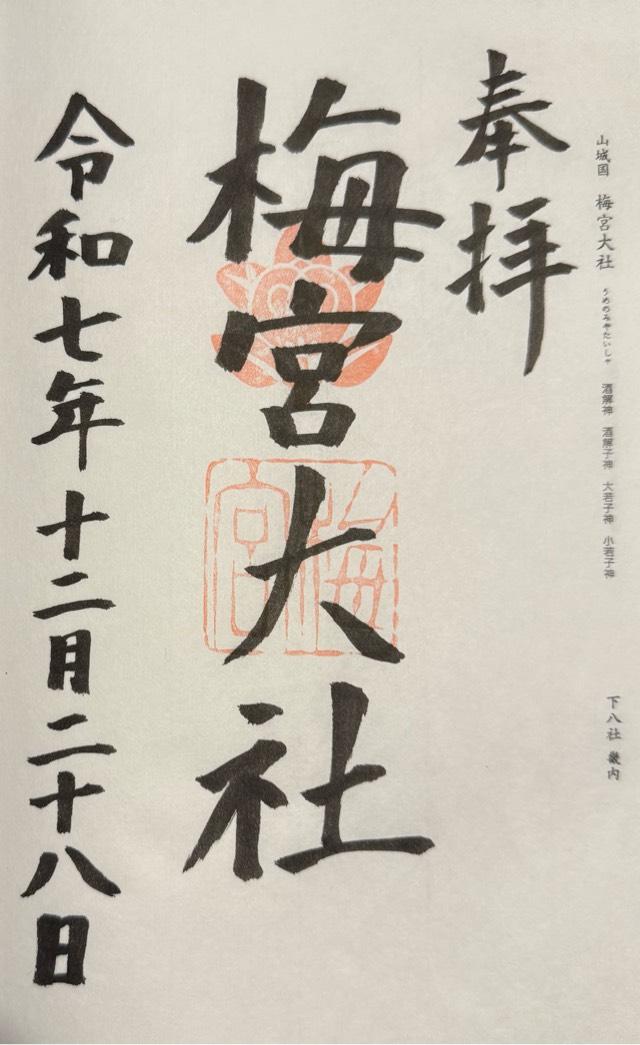 山城国 梅宮大社 うめのみやたいしゃ 酒解神 酒解子神 大若子神 小若子神
下八社 畿内
奉拝
梅宮大社
梅宮
令和七年十二月二十八日